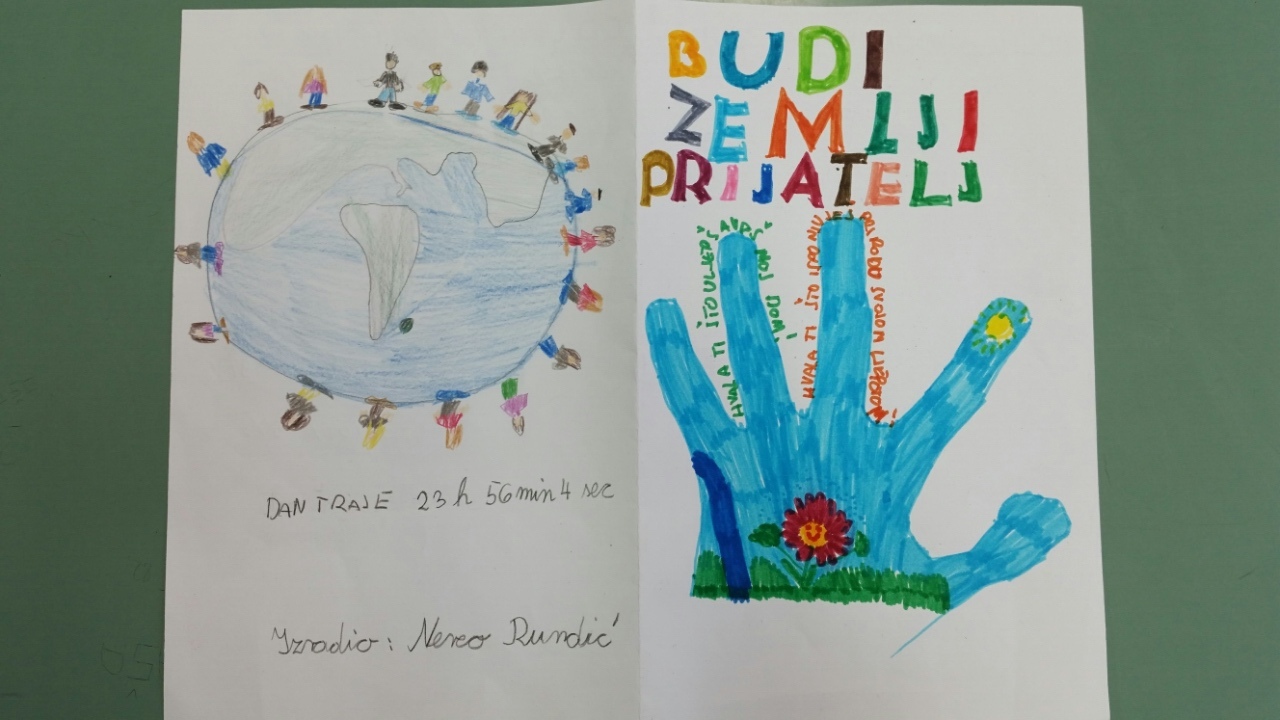 DAN TRAJE 23 h 56 min 4 sec
Izradio: Nereo Rundić
BUDI
ZEMLJI
PRIJATELJ
HVALA TI ŠTO ULJEPŠAVAŠ MOJ DOM!
HVALA TI ŠTO
PRIRODO SVOJOM LJEPOTOM!